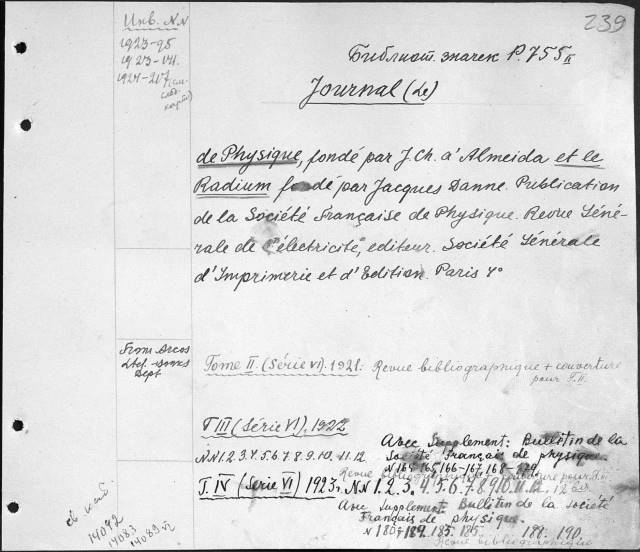 239
Инв. NN
1923-95
1923-141.
1924-207 (см.
Библиот. значек P. 755 II
Journal (Le)
de Physique, fondé par J. Ch. d'Almeida et le
Radium fondé par Jacques Danne. Publication
de la Société Française de Physique. Revue Géné-
rale de l'électricité, editeur. Société Générale
d'Imprimerie et d'Edition. Paris 4°
From Arcos
Ltd. Books
Dept.
Tome II. (Série VI). 1921. Revue bibliographique + couverture
pour T. II.
T III (Série VI). 1922
N.N 1. 2. 3. 4. 5. 6. 7. 8. 9. 10. 11. 12.
Avec Supplement: Bulletin de la
Société Français de physique.
N 164-165, 166-167, 168-
Revue bibliographique couverture pour T.
T. IV (Série VI) 1923. N.N 1. 2. 3. 4. 5. 6. 7. 8. 9. 10. 11. 12.
Avec Supplement. Bulletin de la société
Français de physique.
N 180 184. 185. 188. 190.
Revue bibliographique
14092
14083
14089